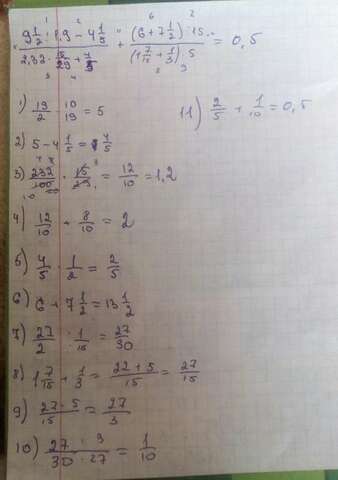 9 1/2 : 1,9 - 4 1/5 / 2,32 · 15/29 + 4/5 + (6 + 7 1/2) : 15 / (1 7/15 + 1/3) : 5 = 0,5
1) 19/2 · 10/19 = 5
11) 2/5 + 1/10 = 0,5
2) 5 - 4 1/5 = 4/5
3) 232/100 · 15/29 = 12/10 = 1,2
4) 12/10 + 8/10 = 2
5) 4/5 · 1/2 = 2/5
6) 6 + 7 1/2 = 13 1/2
7) 27/2 · 1/15 = 27/30
8) 1 7/15 + 1/3 = 22 + 5/15 = 27/15
9) 27 · 5/15 = 27/3
10) 27 · 3/30 · 27 = 1/10